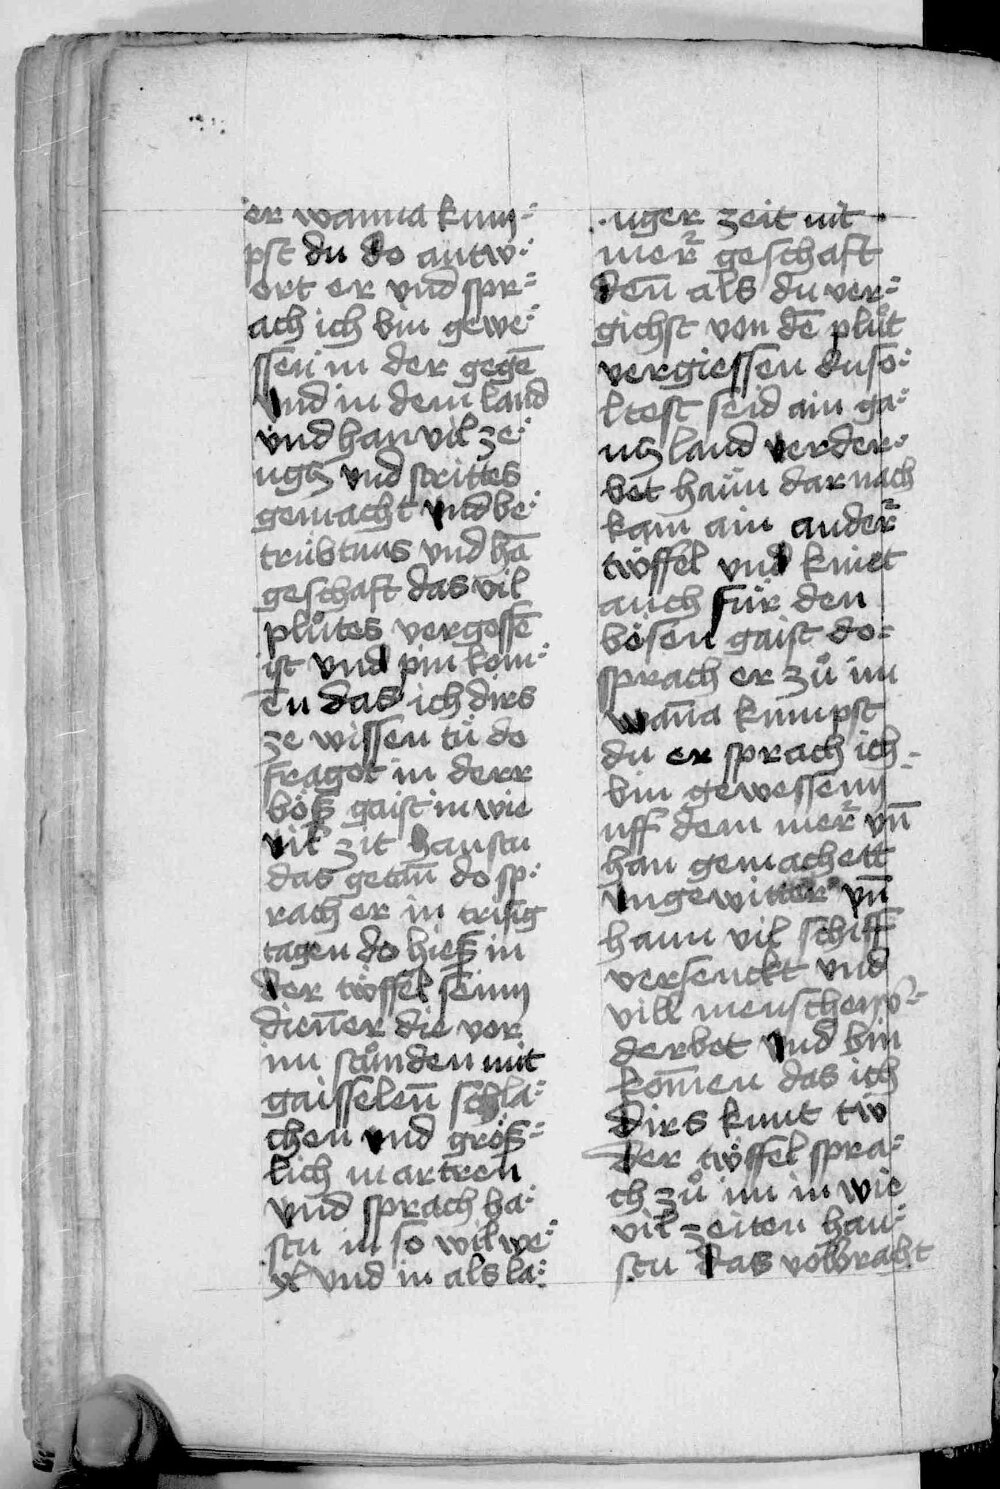 er wanna kum⸗
pst du do antw⸗
ort er vnd spr⸗
ach ich bin gewe⸗
ssen in der gegē
vnd in dem land
vnd han vil ze⸗
ugß vnd strittes
gemacht vnd be⸗
trübtnus vnd hā
geschaft das vil
plůtes vergossē
ist vnd pin kom⸗
en das ich dirs
ze wissen tü do
fragot in derr
böß gaist in wie
vil zit haustu
das getaū do sp⸗
rach er in trisig
tagen do hieß in
der töffel seinn
dieñer die vor
im stůnden mit
gaisselen̄ schla⸗
chen vnd größ⸗
lich martren
vnd sprach ha⸗
stu in so wil we⸗
yl vnd in als la⸗
nger zeit nit
mer geschaft
den̄ als du ver⸗
gichst von dē plůt
vergiessen du so⸗
ltest seid ain ga⸗
nß land verder⸗
bet haun dar nach
kam ain ander
töffel vnd kniet
auch für den
bösen gaist do⸗
sprach er zů im
wan̄a kumpst
du er sprach ich
bin gewessenn
uff dem mer vn̄
han gemachett
vngewitter vn̄
haun vil schiff
versenckt vnd
vill menschen v⸗
derbet vnd bin
kom̄en das ich
dirs kunt tw
der töffel spra⸗
ch zů im in wie
vil zeiten hau⸗
stu das volbracht